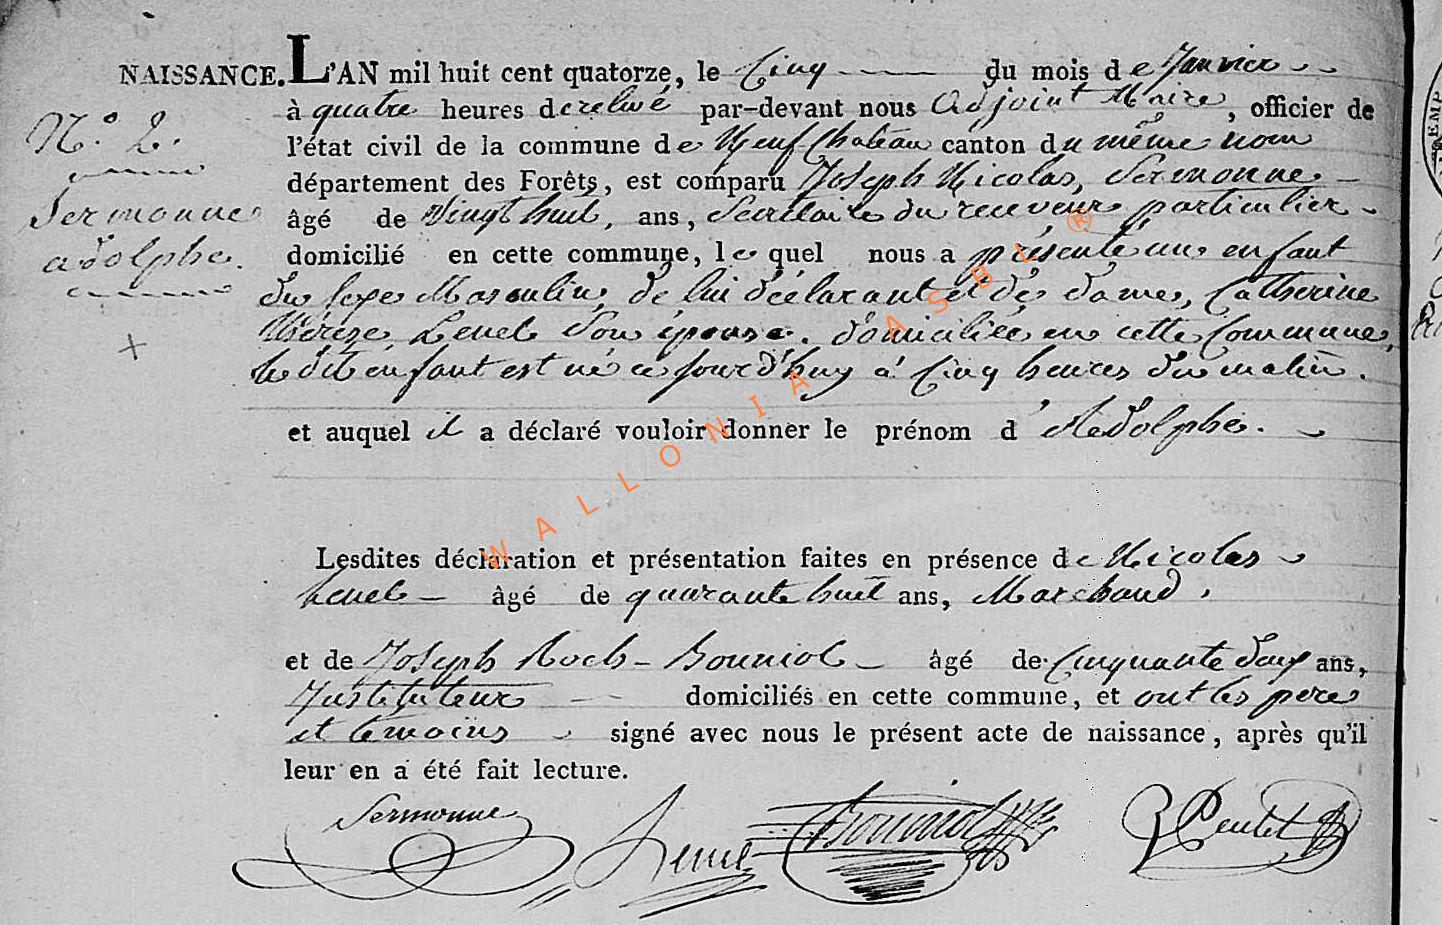 NAISSANCE. L'AN mil huit cent quatorze, le Cinq du mois de Janvier
N.º 2.
à quatre heures de relevé par-devant nous adjoint Maire, officier de
l'état civil de la commune de Neufchateau canton du même nom
département des Forêts, est comparu Joseph Nicolas, Sermonne
Sermonne
âgé de Vingt huit, ans, Secretaire du receveur particulier
adolphe.
domicilié en cette commune, le quel nous a présenté un enfant
du sexe Masculin, de lui déclarant et de dame, Catherine
Thérèze Son épouse. domiciliée en cette Commune,
le dit enfant est né ce jourd'huy à Cinq heures du matin.
et auquel il a déclaré vouloir donner le prénom d'Adolphe.
Lesdites déclaration et présentation faites en présence de Nicolas
âgé de quarante huit ans, Marchand,
et de Joseph Roch Bouniol âgé de Cinquante deux ans,
Instituteur domiciliés en cette commune, et ont les pere
et temoins signé avec nous le présent acte de naissance, après qu'il
leur en a été fait lecture.
Sermonne Bouniol
WALLONIA ASBL ®